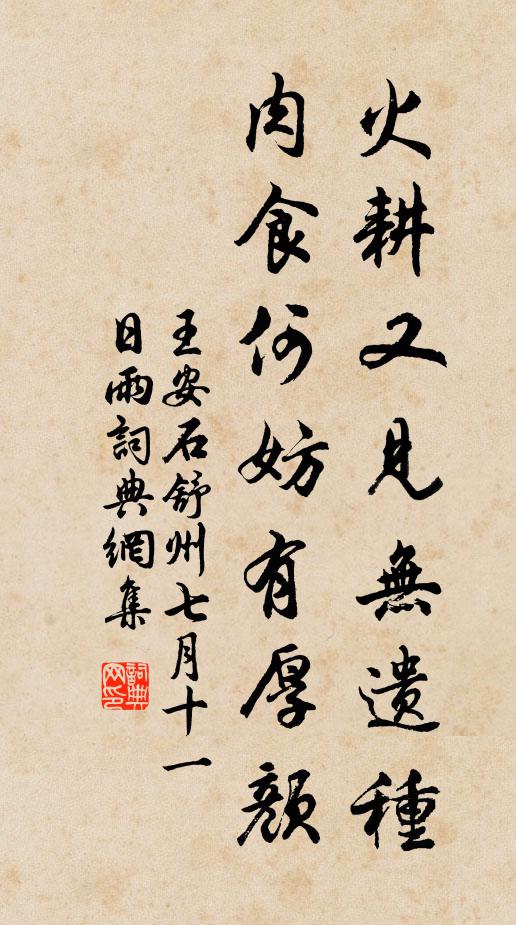 火耕又見無遺種
肉食何妨有厚顏
王安石舒州七月十一
日雨詞典網集
詞典
网印